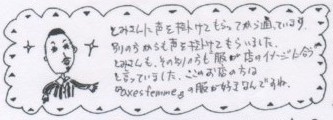 とみさんに声を掛けてもらってから通っています。
別の方からも声を掛けてもらいました。
とみさんも、その別の方も"服が店のイメージに合う"
と言っていました。ここのお店の方は
axesfemmeの服が好きなんですね。